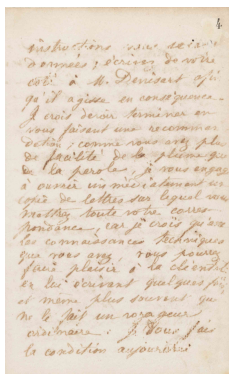 4
instructions vous seront
données, écrivez de votre
coté à M. Denisart afin
qu'il agisse en conséquence
Je crois devoir terminer en
vous faisant une recomman
dation; comme vous avez plus
de facilité de la plume que
de la parole, je vous engage
à ouvrir immédiatement un
copie de lettres sur lequel vous
mettrez toute votre corres-
pondance, car je crois qu'avec
les connaissances techniques
que vous avez, vous pourrez
faire plaisir à la clientèle
en lui écrivant quelques fois
et même plus souvent que
ne le fait un voyageur
ordinaire. Je vous fais
la condition aujourd'hui